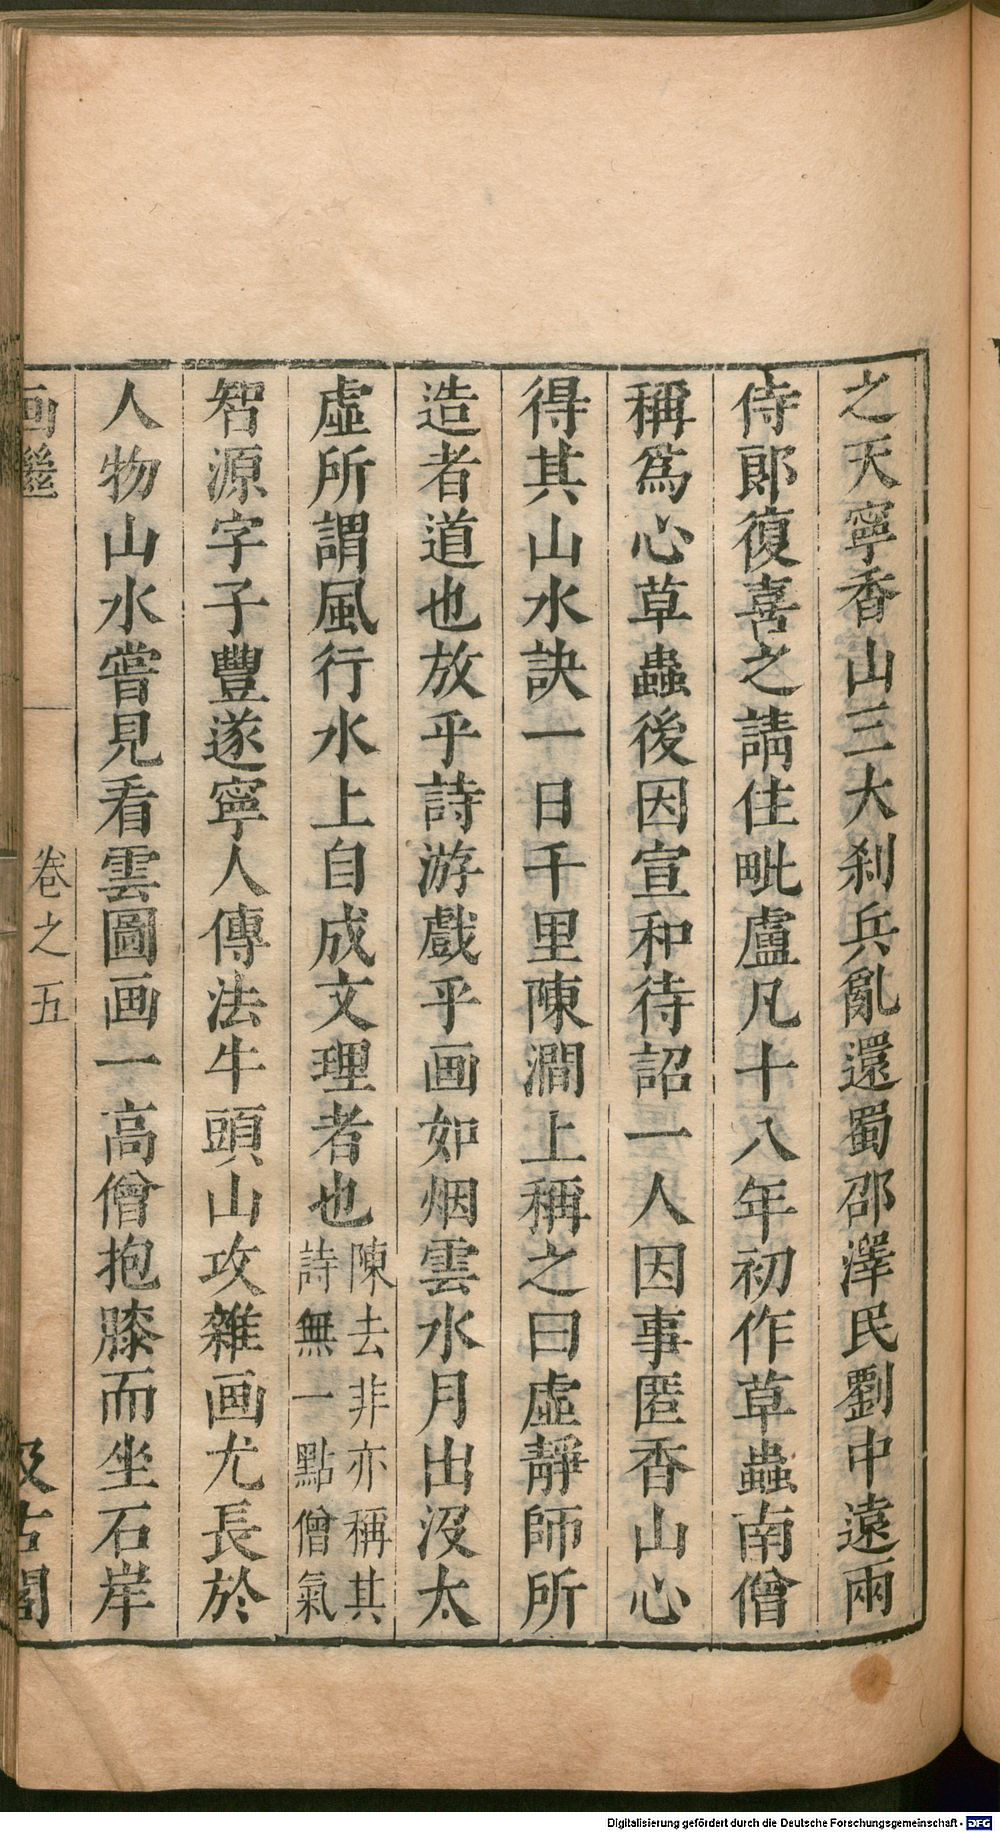 之天寧香山三大刹兵亂還蜀邵澤民劉中遠兩
侍郎復喜之請住毗盧凡十八年初作草蟲南僧
稱爲心草蟲後因宣和待詔一人因事匿香山心
得其山水訣一日千里陳澗上稱之曰虛靜師所
造者道也放乎詩游戲乎画如烟雲水月出沒太
虛所謂風行水上自成文理者也陳去非亦稱其
詩無一點僧氣
智源字子豐遂寧人傳法牛頭山攻雜画尤長於
人物山水嘗見看雲圖画一高僧抱膝而坐石岸
画繼
卷之五
汲古閣
Digitalisierung gefördert durch die Deutsche Forschungsgemeinschaft - DFG